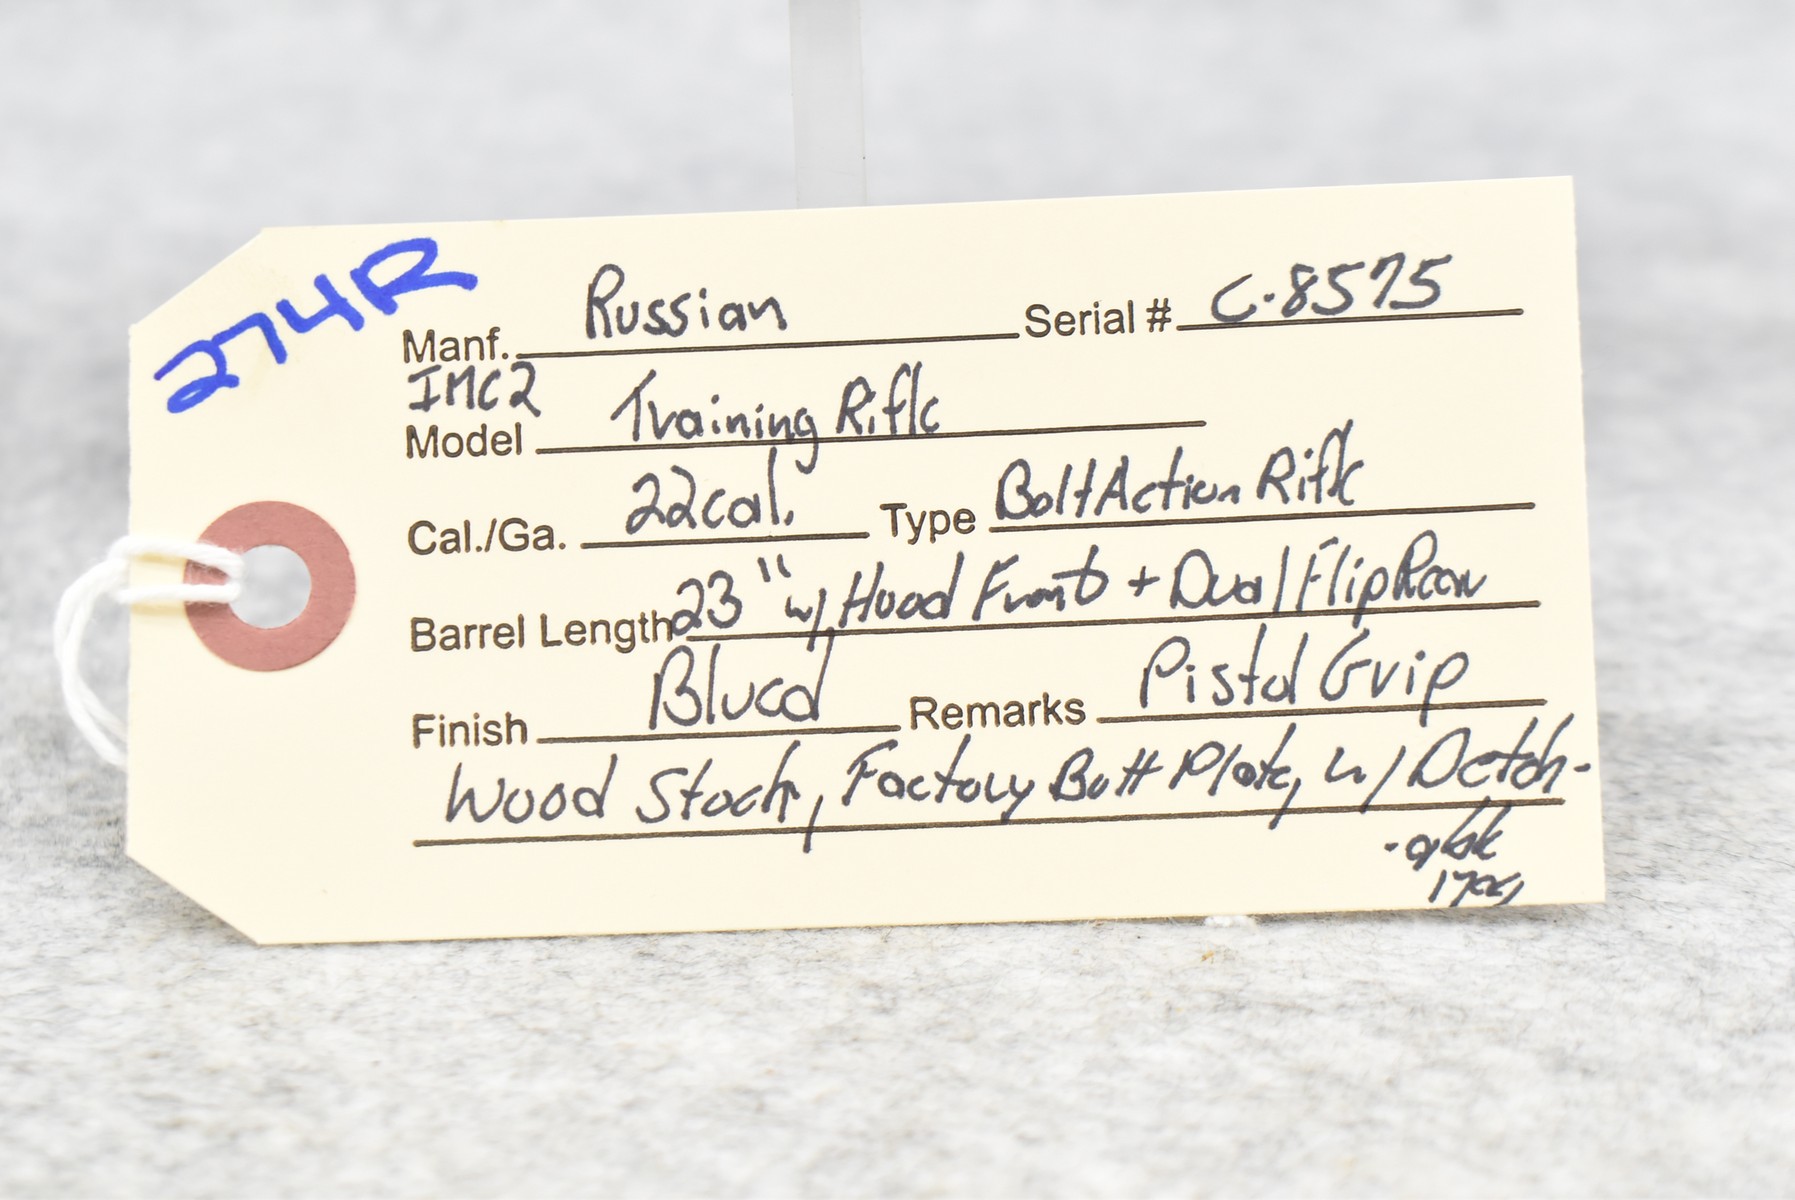 274R
Manf. Russian Serial # C-8575
IMC2
Model Training Rifle
Cal./Ga. 22cal. Type Bolt Action Rifle
Barrel Length 23" w/ Hood Front + Dual Flip Rear
Finish Blued Remarks Pistol Grip
Wood Stock, Factory Butt Plate, w/ Detch-
-able